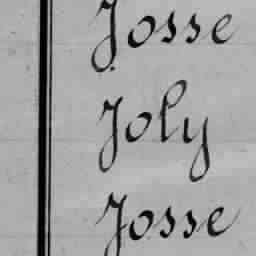 Josse
Joly
Josse